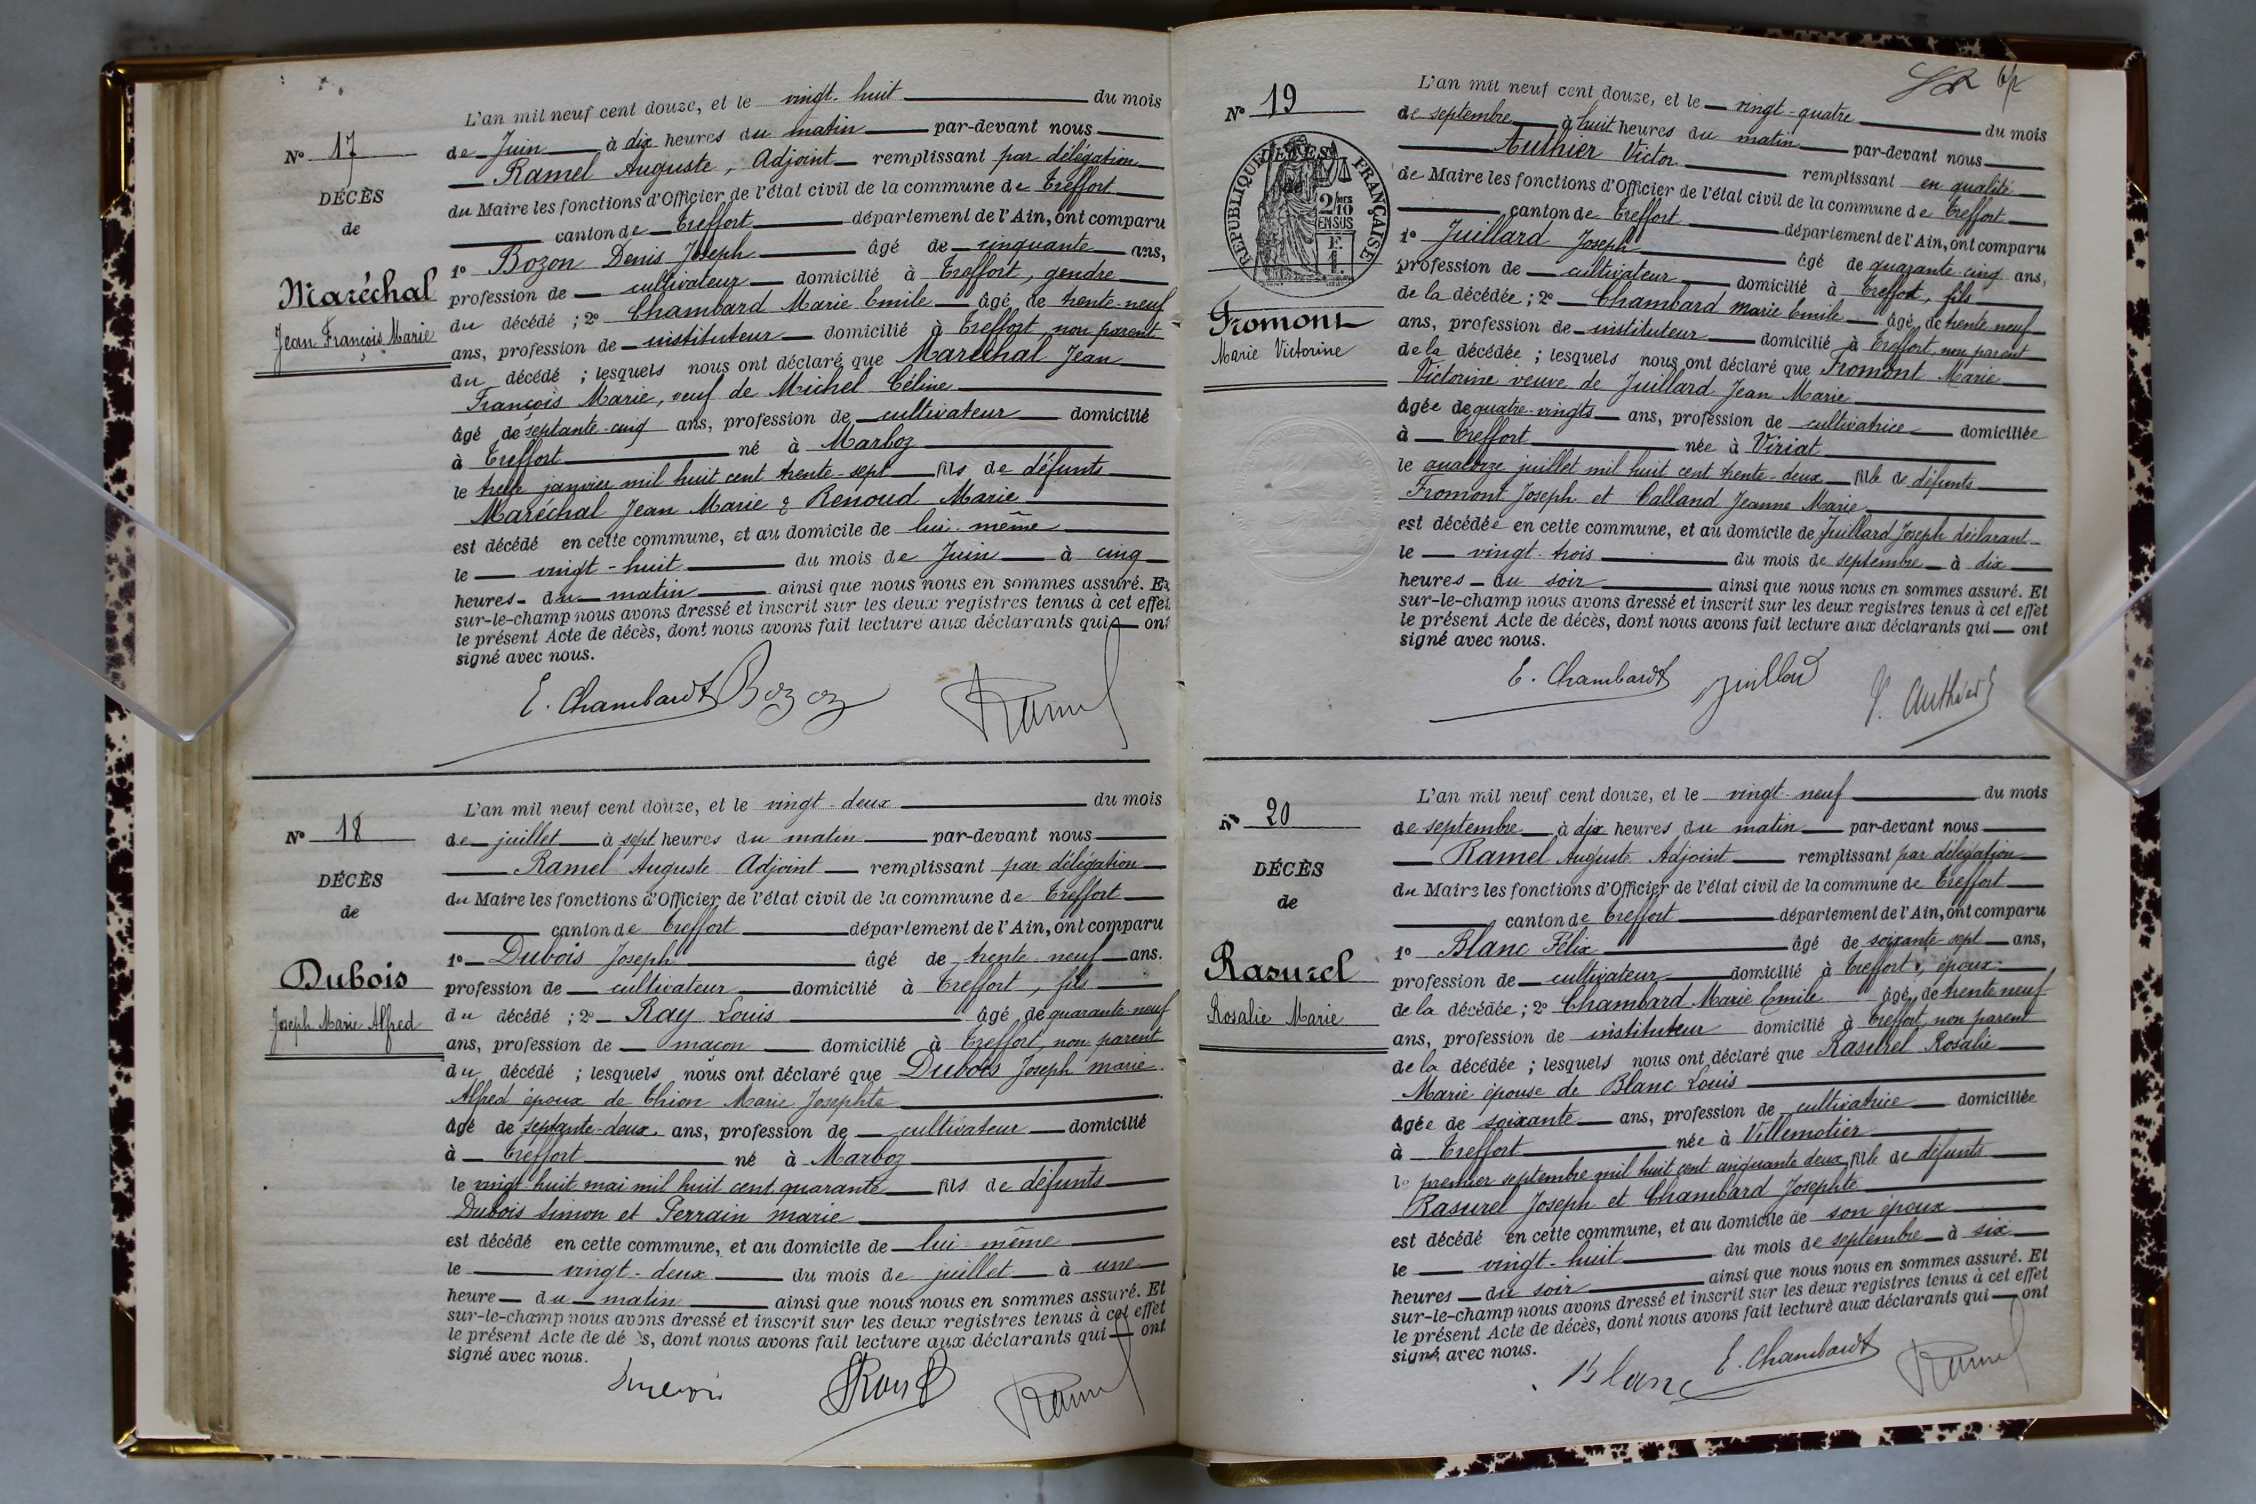 N° 17
DÉCÈS
de
Maréchal
Jean François Marie
L'an mil neuf cent douze, et le vingt-huit du mois
de Juin à dix heures du matin par-devant nous
Ramel Auguste, Adjoint remplissant par délégation
du Maire les fonctions d'Officier de l'état civil de la commune de Treffort
canton de Treffort département de l'Ain, ont comparu
1° Bozon Denis Joseph âgé de cinquante ans,
profession de cultivateur domicilié à Treffort, gendre
du décédé ; 2° Chambard Marie Emile âgé de trente-neuf
ans, profession de instituteur domicilié à Treffort non parent
du décédé ; lesquels nous ont déclaré que Maréchal Jean
François Marie, veuf de Michel Céline
âgé de septante-cinq ans, profession de cultivateur domicilié
à Treffort né à Marboz
le treize janvier mil huit cent trente-sept fils de défunts
Maréchal Jean Marie & Renoud Marie
est décédé en cette commune, et au domicile de lui-même
le vingt-huit du mois de Juin à cinq
heures du matin ainsi que nous nous en sommes assuré. Et
sur-le-champ nous avons dressé et inscrit sur les deux registres tenus à cet effet
le présent Acte de décès, dont nous avons fait lecture aux déclarants qui ont
signé avec nous.
E. Chambard Bozon Ramel
N° 18
DÉCÈS
de
Dubois
Joseph Marie Alfred
L'an mil neuf cent douze, et le vingt-deux du mois
de juillet à sept heures du matin par-devant nous
Ramel Auguste Adjoint remplissant par délégation
du Maire les fonctions d'Officier de l'état civil de la commune de Treffort
canton de Treffort département de l'Ain, ont comparu
1° Dubois Joseph âgé de trente neuf ans.
profession de cultivateur domicilié à Treffort, fils
du décédé ; 2° Ray Louis âgé de quarante-neuf
ans, profession de maçon domicilié à Treffort, non parent
du décédé ; lesquels nous ont déclaré que Dubois Joseph marie
Alfred époux de Chion Marie Josephte
âgé de septante-deux ans, profession de cultivateur domicilié
à Treffort né à Marboz
le vingt-huit mai mil huit cent quarante fils de défunts
Dubois Simon et Perrain marie
est décédé en cette commune, et au domicile de lui-même
le vingt-deux du mois de juillet à une
heure du matin ainsi que nous nous en sommes assuré. Et
sur-le-champ nous avons dressé et inscrit sur les deux registres tenus à cet effet
le présent Acte de dé s, dont nous avons fait lecture aux déclarants qui ont
signé avec nous.
Ray Ramel
N° 19
RÉPUBLIQUE FRANÇAISE
2/10 EN SUS
Fromont
Marie Victorine
L'an mil neuf cent douze, et le vingt-quatre du mois
de septembre à huit heures du matin par-devant nous
Authier Victor remplissant en qualité
de Maire les fonctions d'Officier de l'état civil de la commune de Treffort
canton de Treffort département de l'Ain, ont comparu
1° Juillard Joseph âgé de quarante cinq ans,
profession de cultivateur domicilié à Treffort, fils
de la décédée ; 2° Chambard Marie Emile âgé de trente neuf
ans, profession de instituteur domicilié à Treffort non parent
de la décédée ; lesquels nous ont déclaré que Fromont Marie
Victorine veuve de Juillard Jean Marie
âgée de quatre-vingts ans, profession de cultivatrice domiciliée
à Treffort née à Viriat
le quatorze juillet mil huit cent trente-deux fille de défunts
Fromont Joseph et Calland Jeanne Marie
est décédée en cette commune, et au domicile de Juillard Joseph déclarant
le vingt-trois du mois de septembre à dix
heures du soir ainsi que nous nous en sommes assuré. Et
sur-le-champ nous avons dressé et inscrit sur les deux registres tenus à cet effet
le présent Acte de décès, dont nous avons fait lecture aux déclarants qui ont
signé avec nous.
E. Chambard Juillard V. Authier
N° 20
DÉCÈS
de
Rasurel
Rosalie Marie
L'an mil neuf cent douze, et le vingt-neuf du mois
de septembre à dix heures du matin par-devant nous
Ramel Auguste Adjoint remplissant par délégation
du Maire les fonctions d'Officier de l'état civil de la commune de Treffort
canton de Treffort département de l'Ain, ont comparu
1° Blanc Félix âgé de soixante-sept ans,
profession de cultivateur domicilié à Treffort, époux
de la décédée ; 2° Chambard Marie Emile âgé de trente neuf
ans, profession de instituteur domicilié à Treffort, non parent
de la décédée ; lesquels nous ont déclaré que Rasurel Rosalie
Marie épouse de Blanc Louis
âgée de soixante ans, profession de cultivatrice domiciliée
à Treffort née à Villemotier
le premier septembre mil huit cent cinquante deux fille de défunts
Rasurel Joseph et Chambard Josephte
est décédé en cette commune, et au domicile de son époux
le vingt-huit du mois de septembre à six
heures du soir ainsi que nous nous en sommes assuré. Et
sur-le-champ nous avons dressé et inscrit sur les deux registres tenus à cet effet
le présent Acte de décès, dont nous avons fait lecture aux déclarants qui ont
signé avec nous.
Blanc E. Chambard Ramel